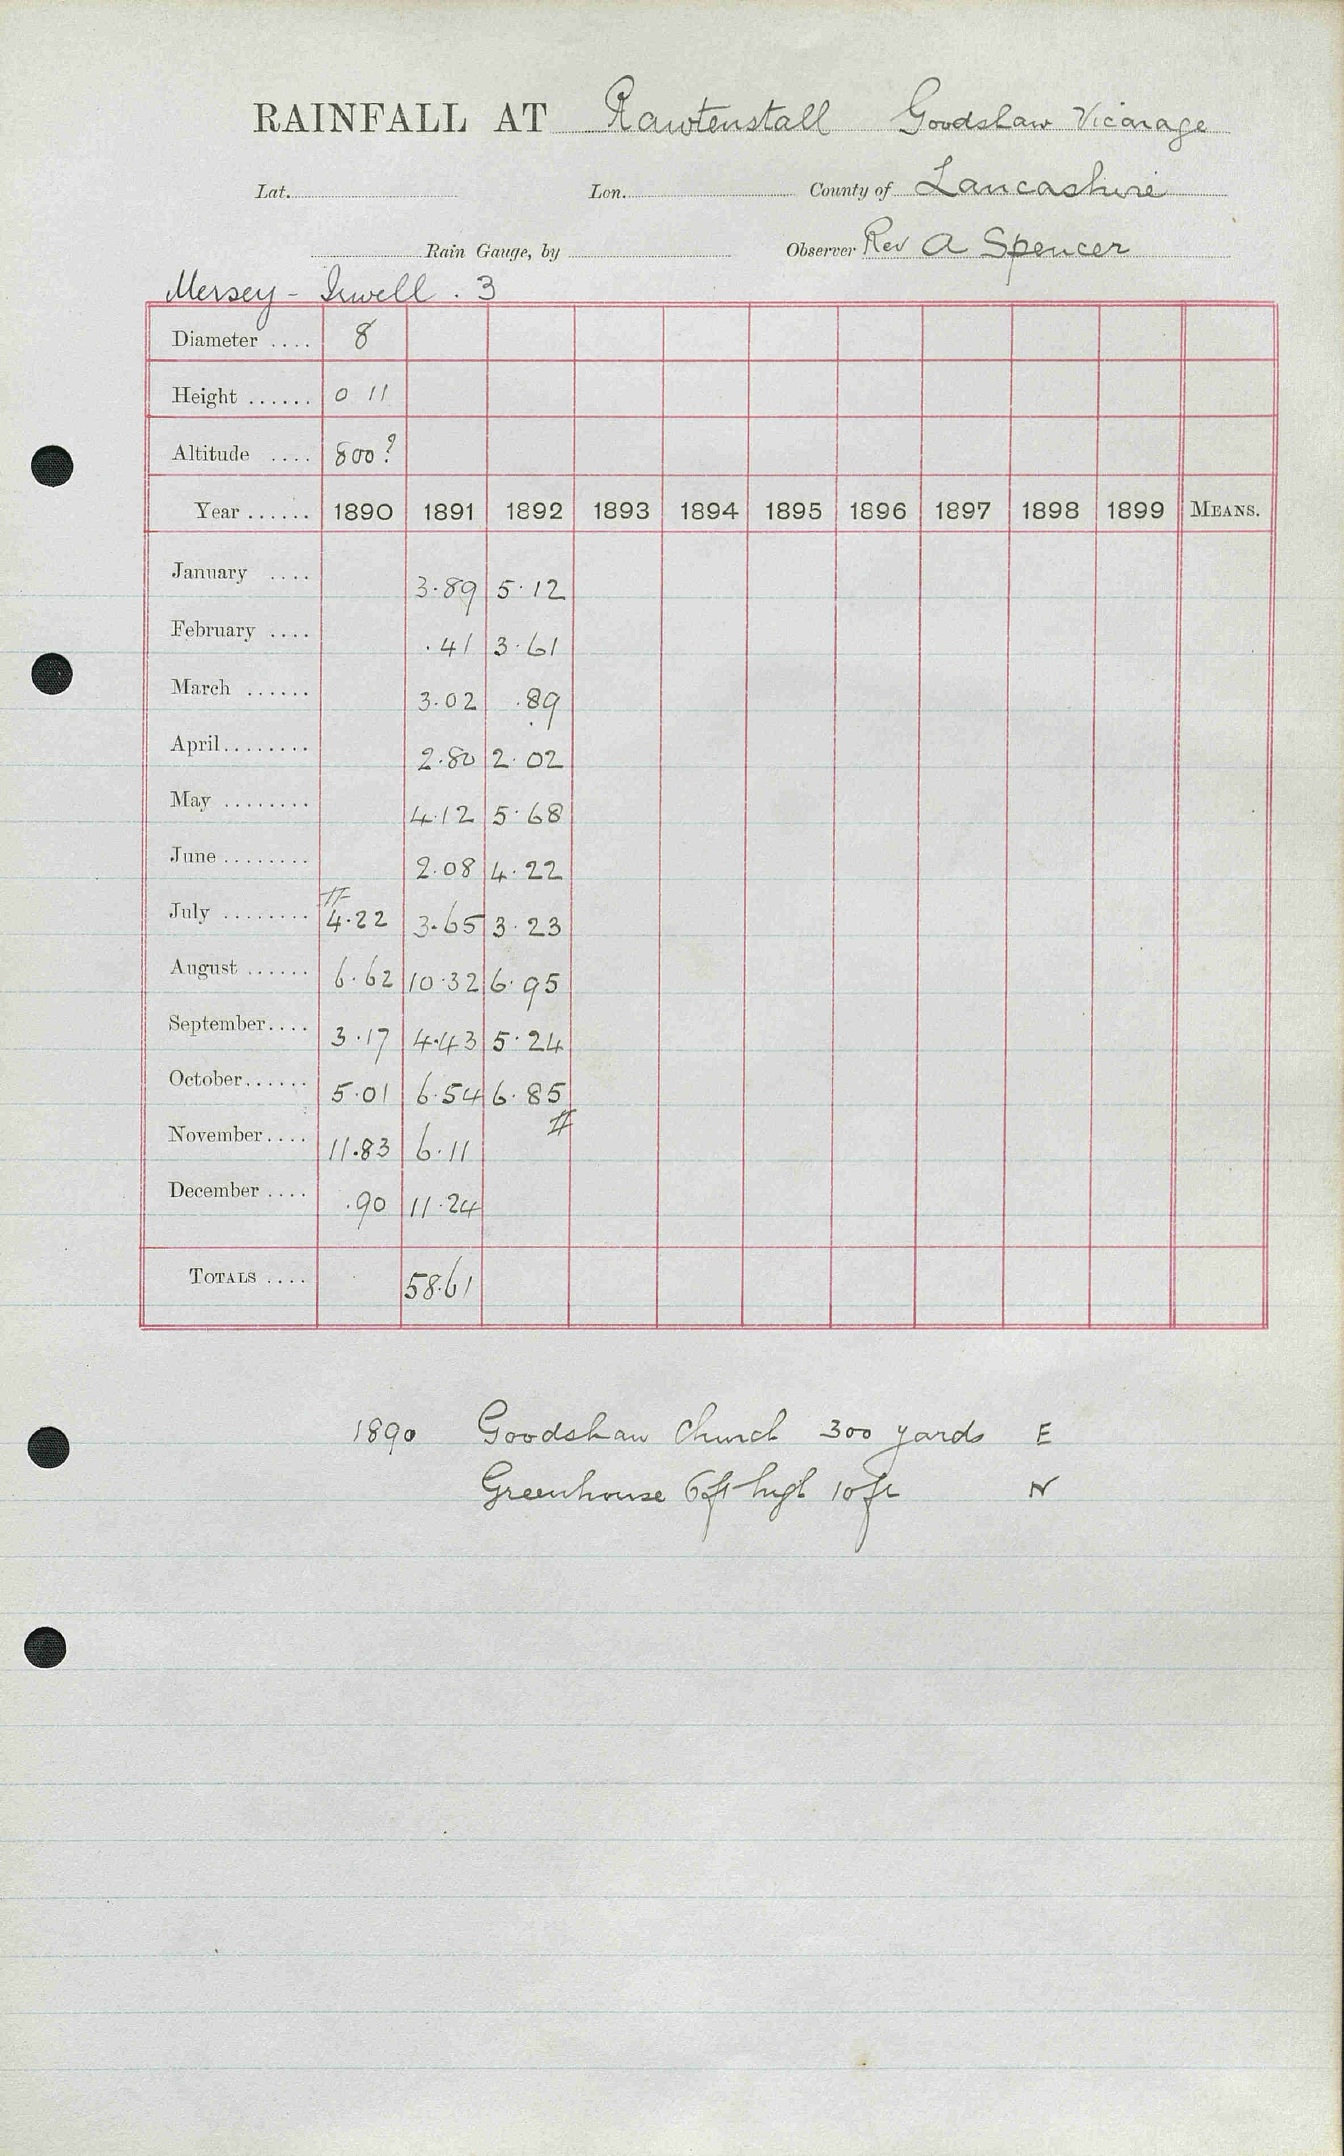 RAINFALL AT Rawtenstall Goodshaw Vicarage
Lat. Lon. County of Lancashire
Rain Gauge, by Observer Rev A Spencer
Mersey - Irwell . 3
Diameter .... 8
Height ...... 0 11
Altitude .... 800?
Year ...... 1890 1891 1892 1893 1894 1895 1896 1897 1898 1899 MEANS.
January .... 3.89 5.12
February .... .41 3.61
March ...... 3.02 .89
April........ 2.80 2.02
May ........ 4.12 5.68
June ........ 2.08 4.22
July ........ 4.22 3.65 3.23
August ...... 6.62 10.32 6.95
September.... 3.17 4.43 5.24
October...... 5.01 6.54 6.85
November.... 11.83 6.11
December .... .90 11.24
TOTALS .... 58.61
1890 Goodshaw Church 300 yards E
Greenhouse 6ft high 10ft N